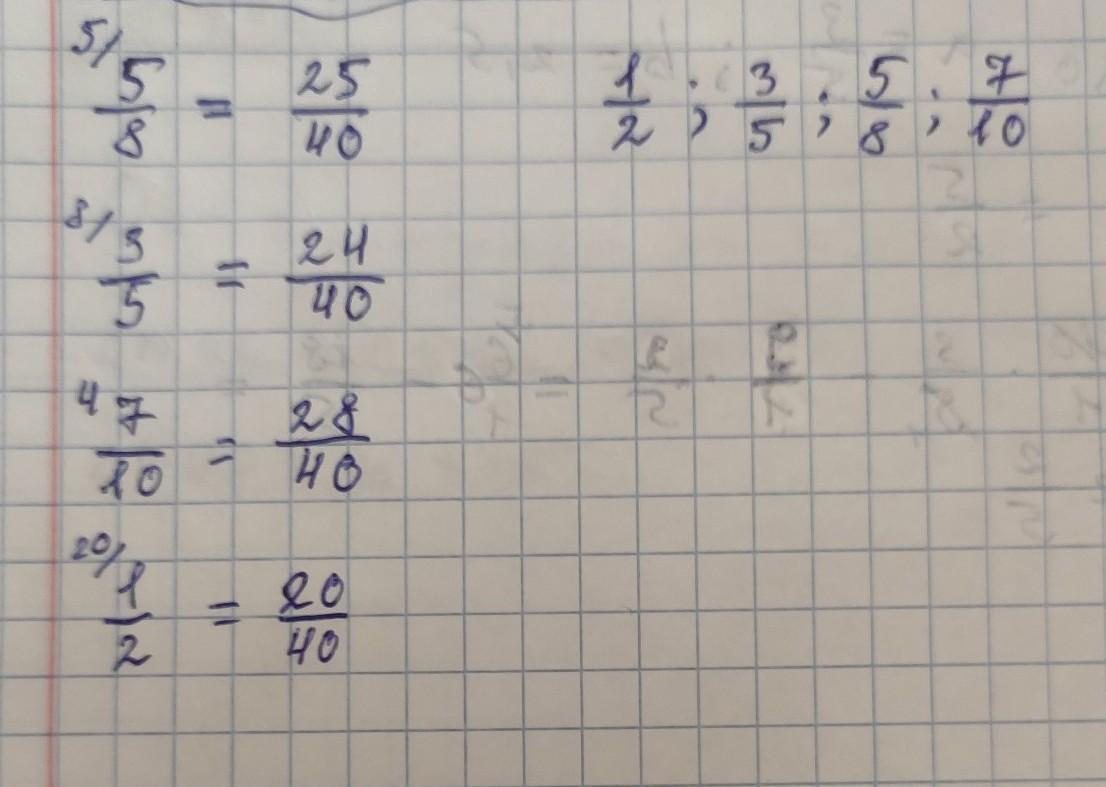 5/ 5/8 = 25/40
1/2 ; 3/5 ; 5/8 ; 7/10
8/ 3/5 = 24/40
4 7/10 = 28/40
20/ 1/2 = 20/40